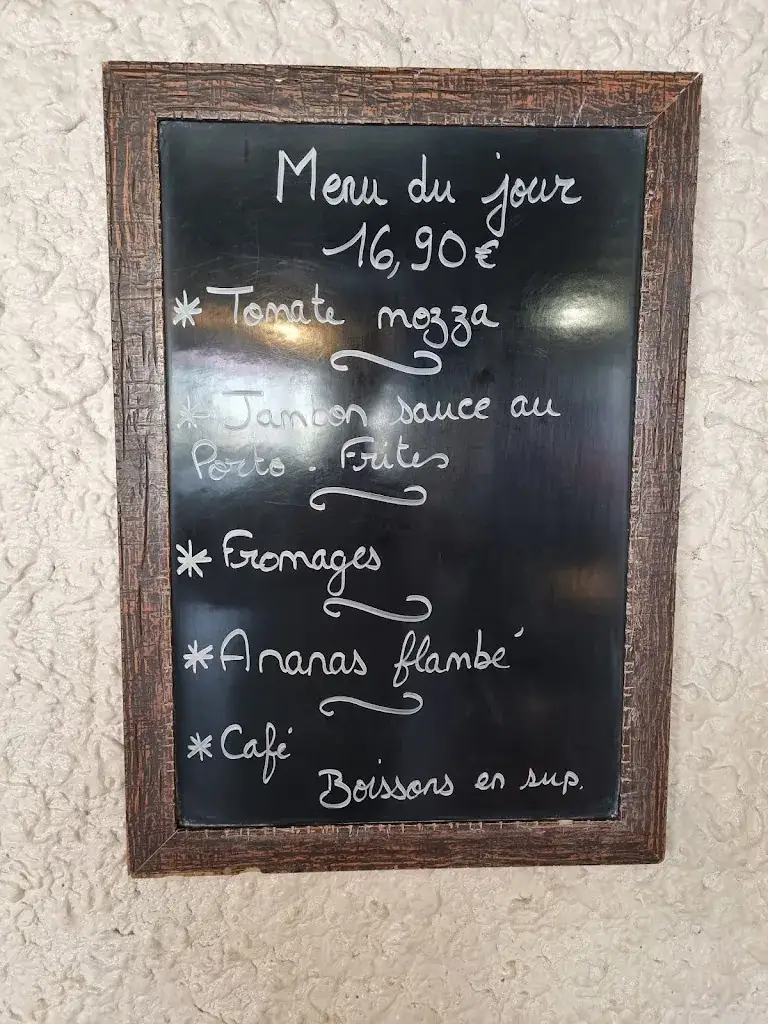 Menu du jour
16,90€
* Tomate mozza
* Jambon sauce au
Porto . Frites
* Fromages
* Ananas flambé
* Café
Boissons en sup.